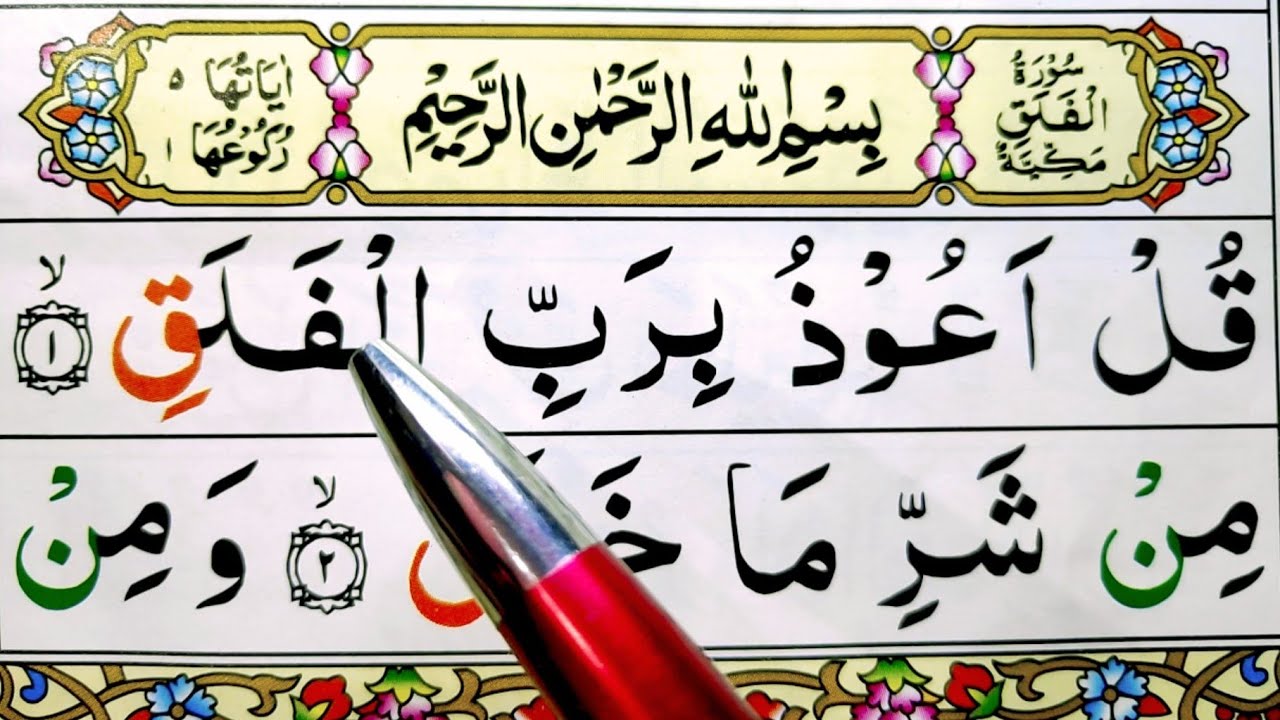 سُوْرَةُ
الْفَلَقِ
مَكِّيَّةٌ
بِسْمِ اللهِ الرَّحْمٰنِ الرَّحِيْمِ
اٰيَاتُهَا ٥
رُكُوْعُهَا ١
قُلْ اَعُوْذُ بِرَبِّ الْفَلَقِ ۙ ١
مِنْ شَرِّ مَا ۙ ٢ وَمِنْ